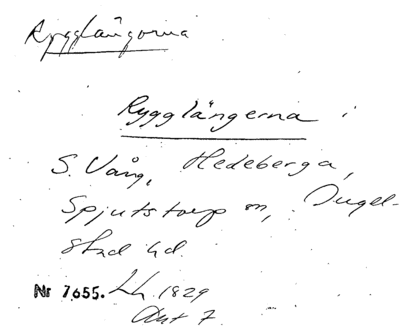 Rygglångorna
Rygglängerna i
S. Vång, Hedeberga,
Spjutstorp sn, Ingel-
stad hd.
Nr 7655. Lh. 1829
Akt 7